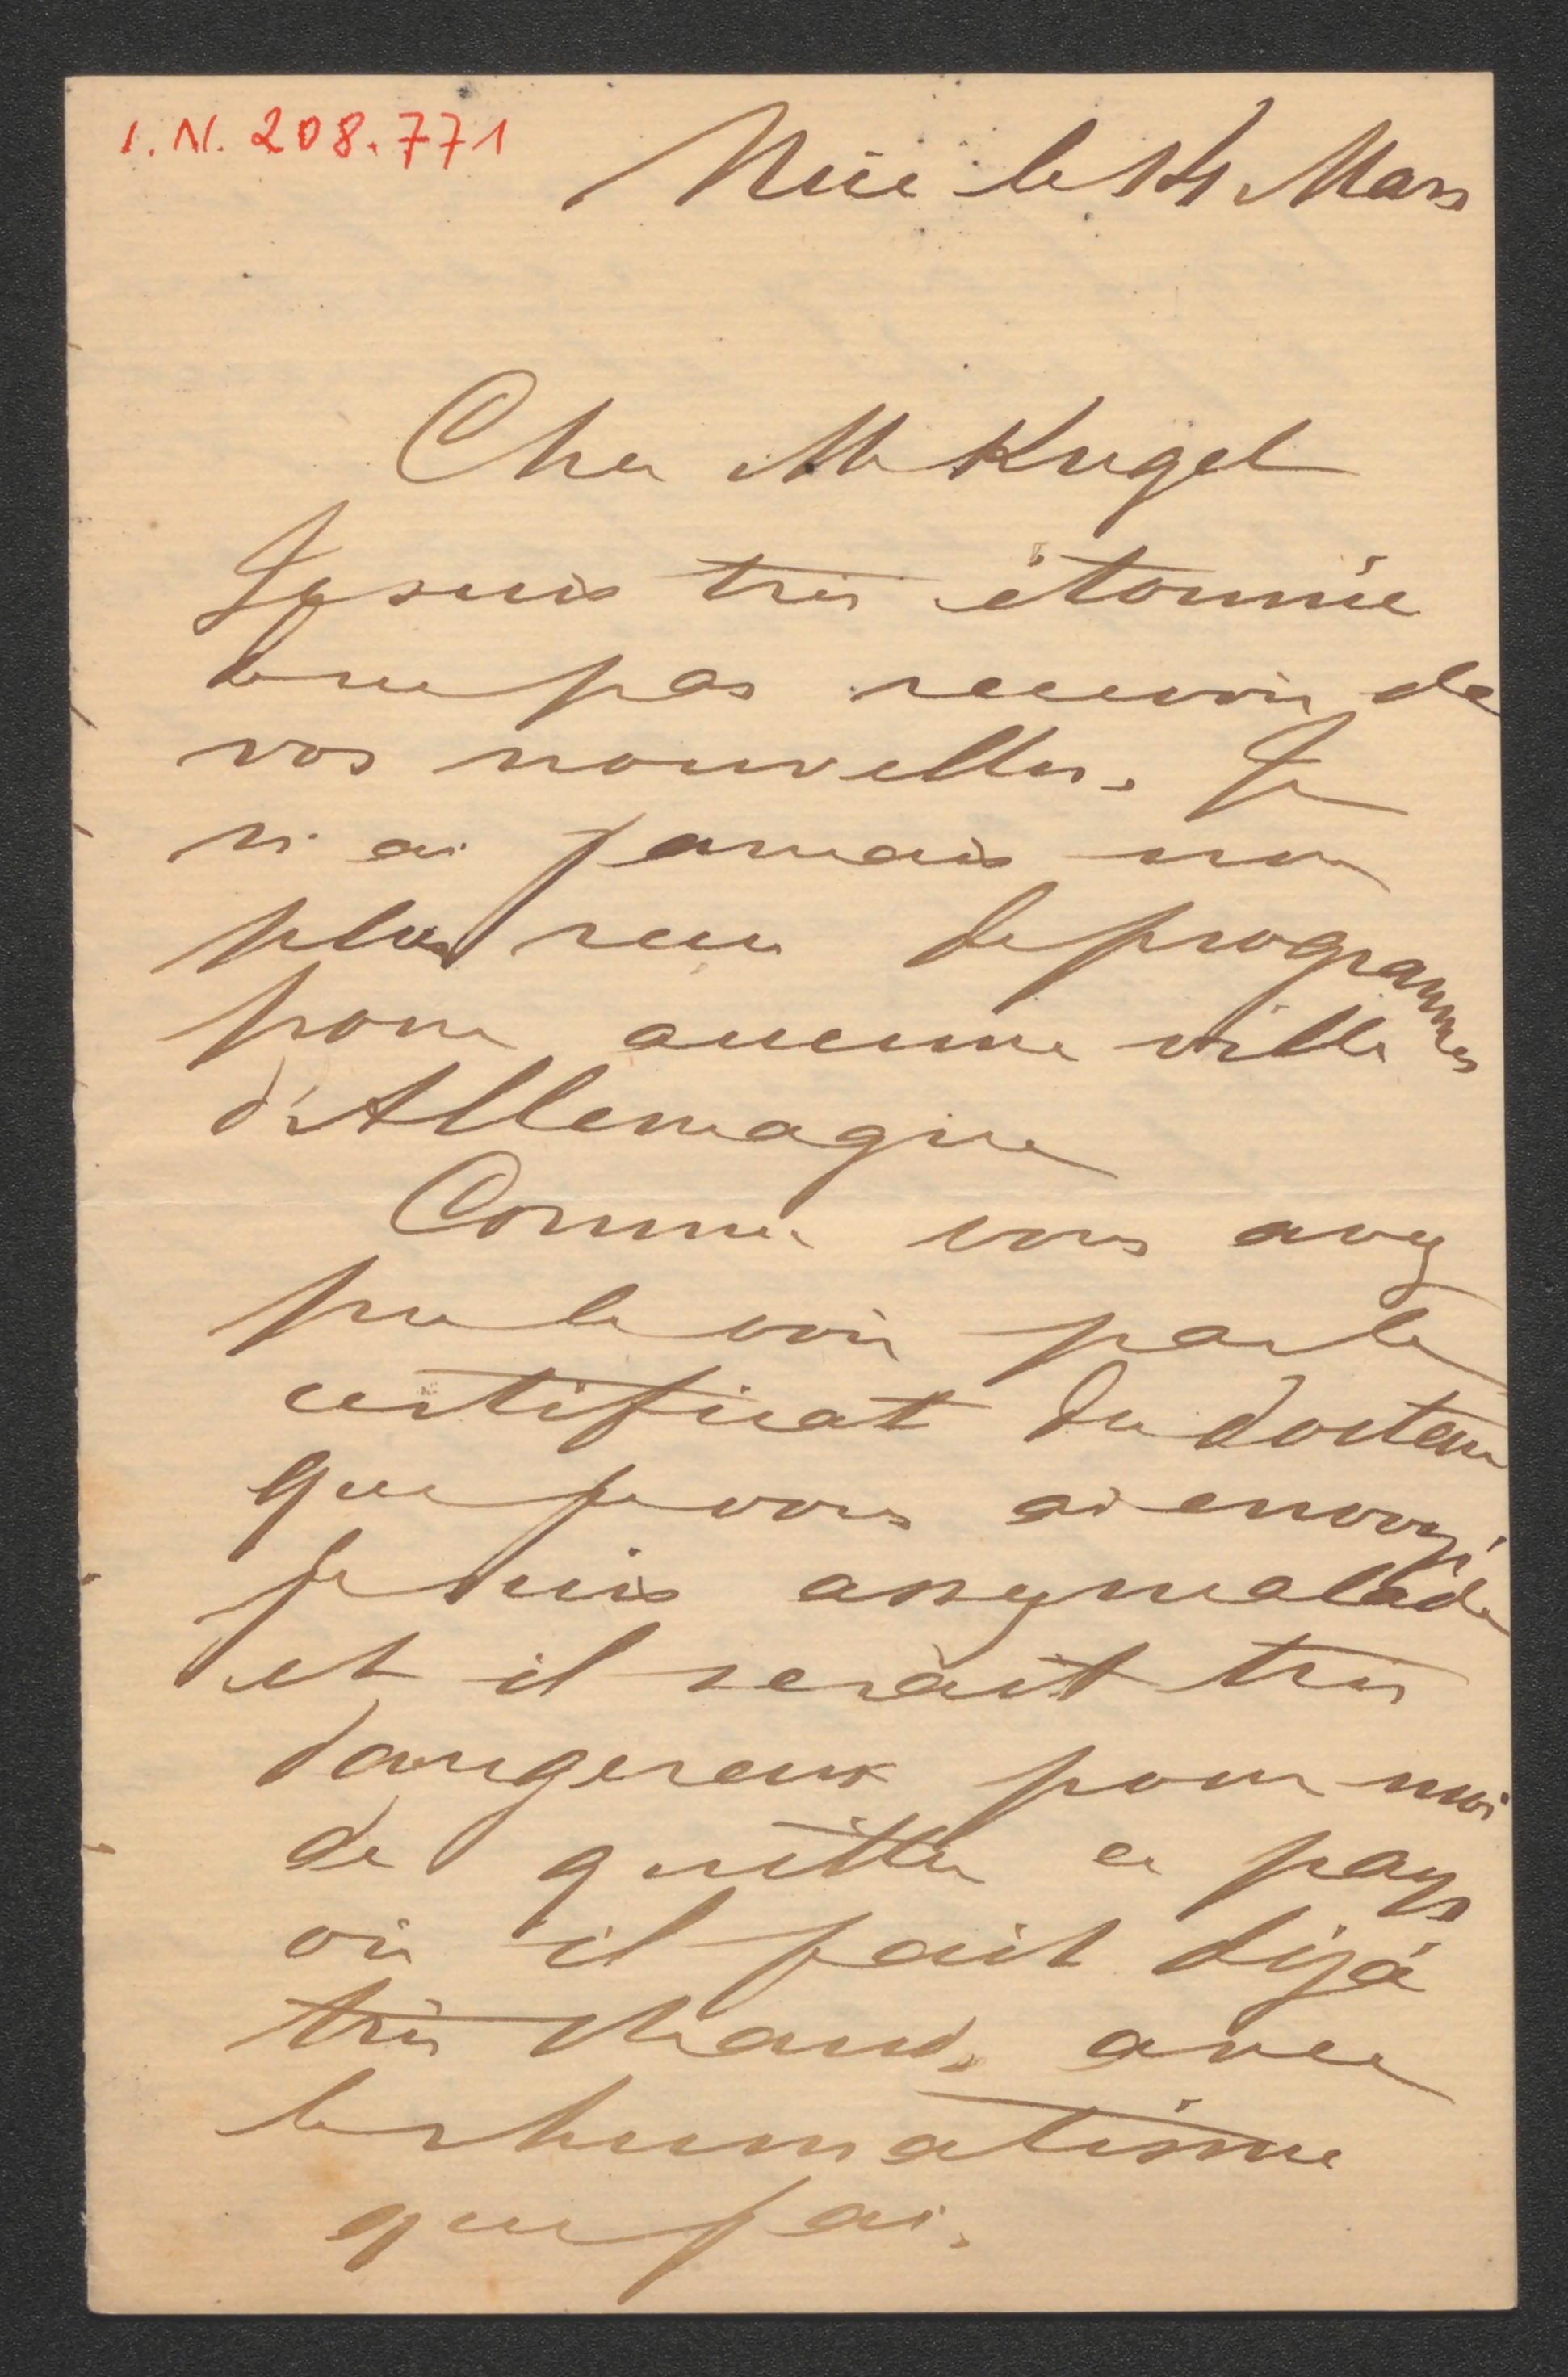 I.N. 208.771
Nice le 14 Mars
Cher Mr Kugel
Je suis très étonnée
de ne pas recevoir de
vos nouvelles. Je
n'ai jamais non
plus reçu de programmes
pour aucune ville
d'Allemagne
Comme vous avez
pu le voir par le
certificat du docteur
que je vous ai envoyé
je suis assez malade
et il serait très
dangereux pour moi
de quitter ce pays
où il fait déjà
très chaud, avec
le rhumatisme
que j'ai.